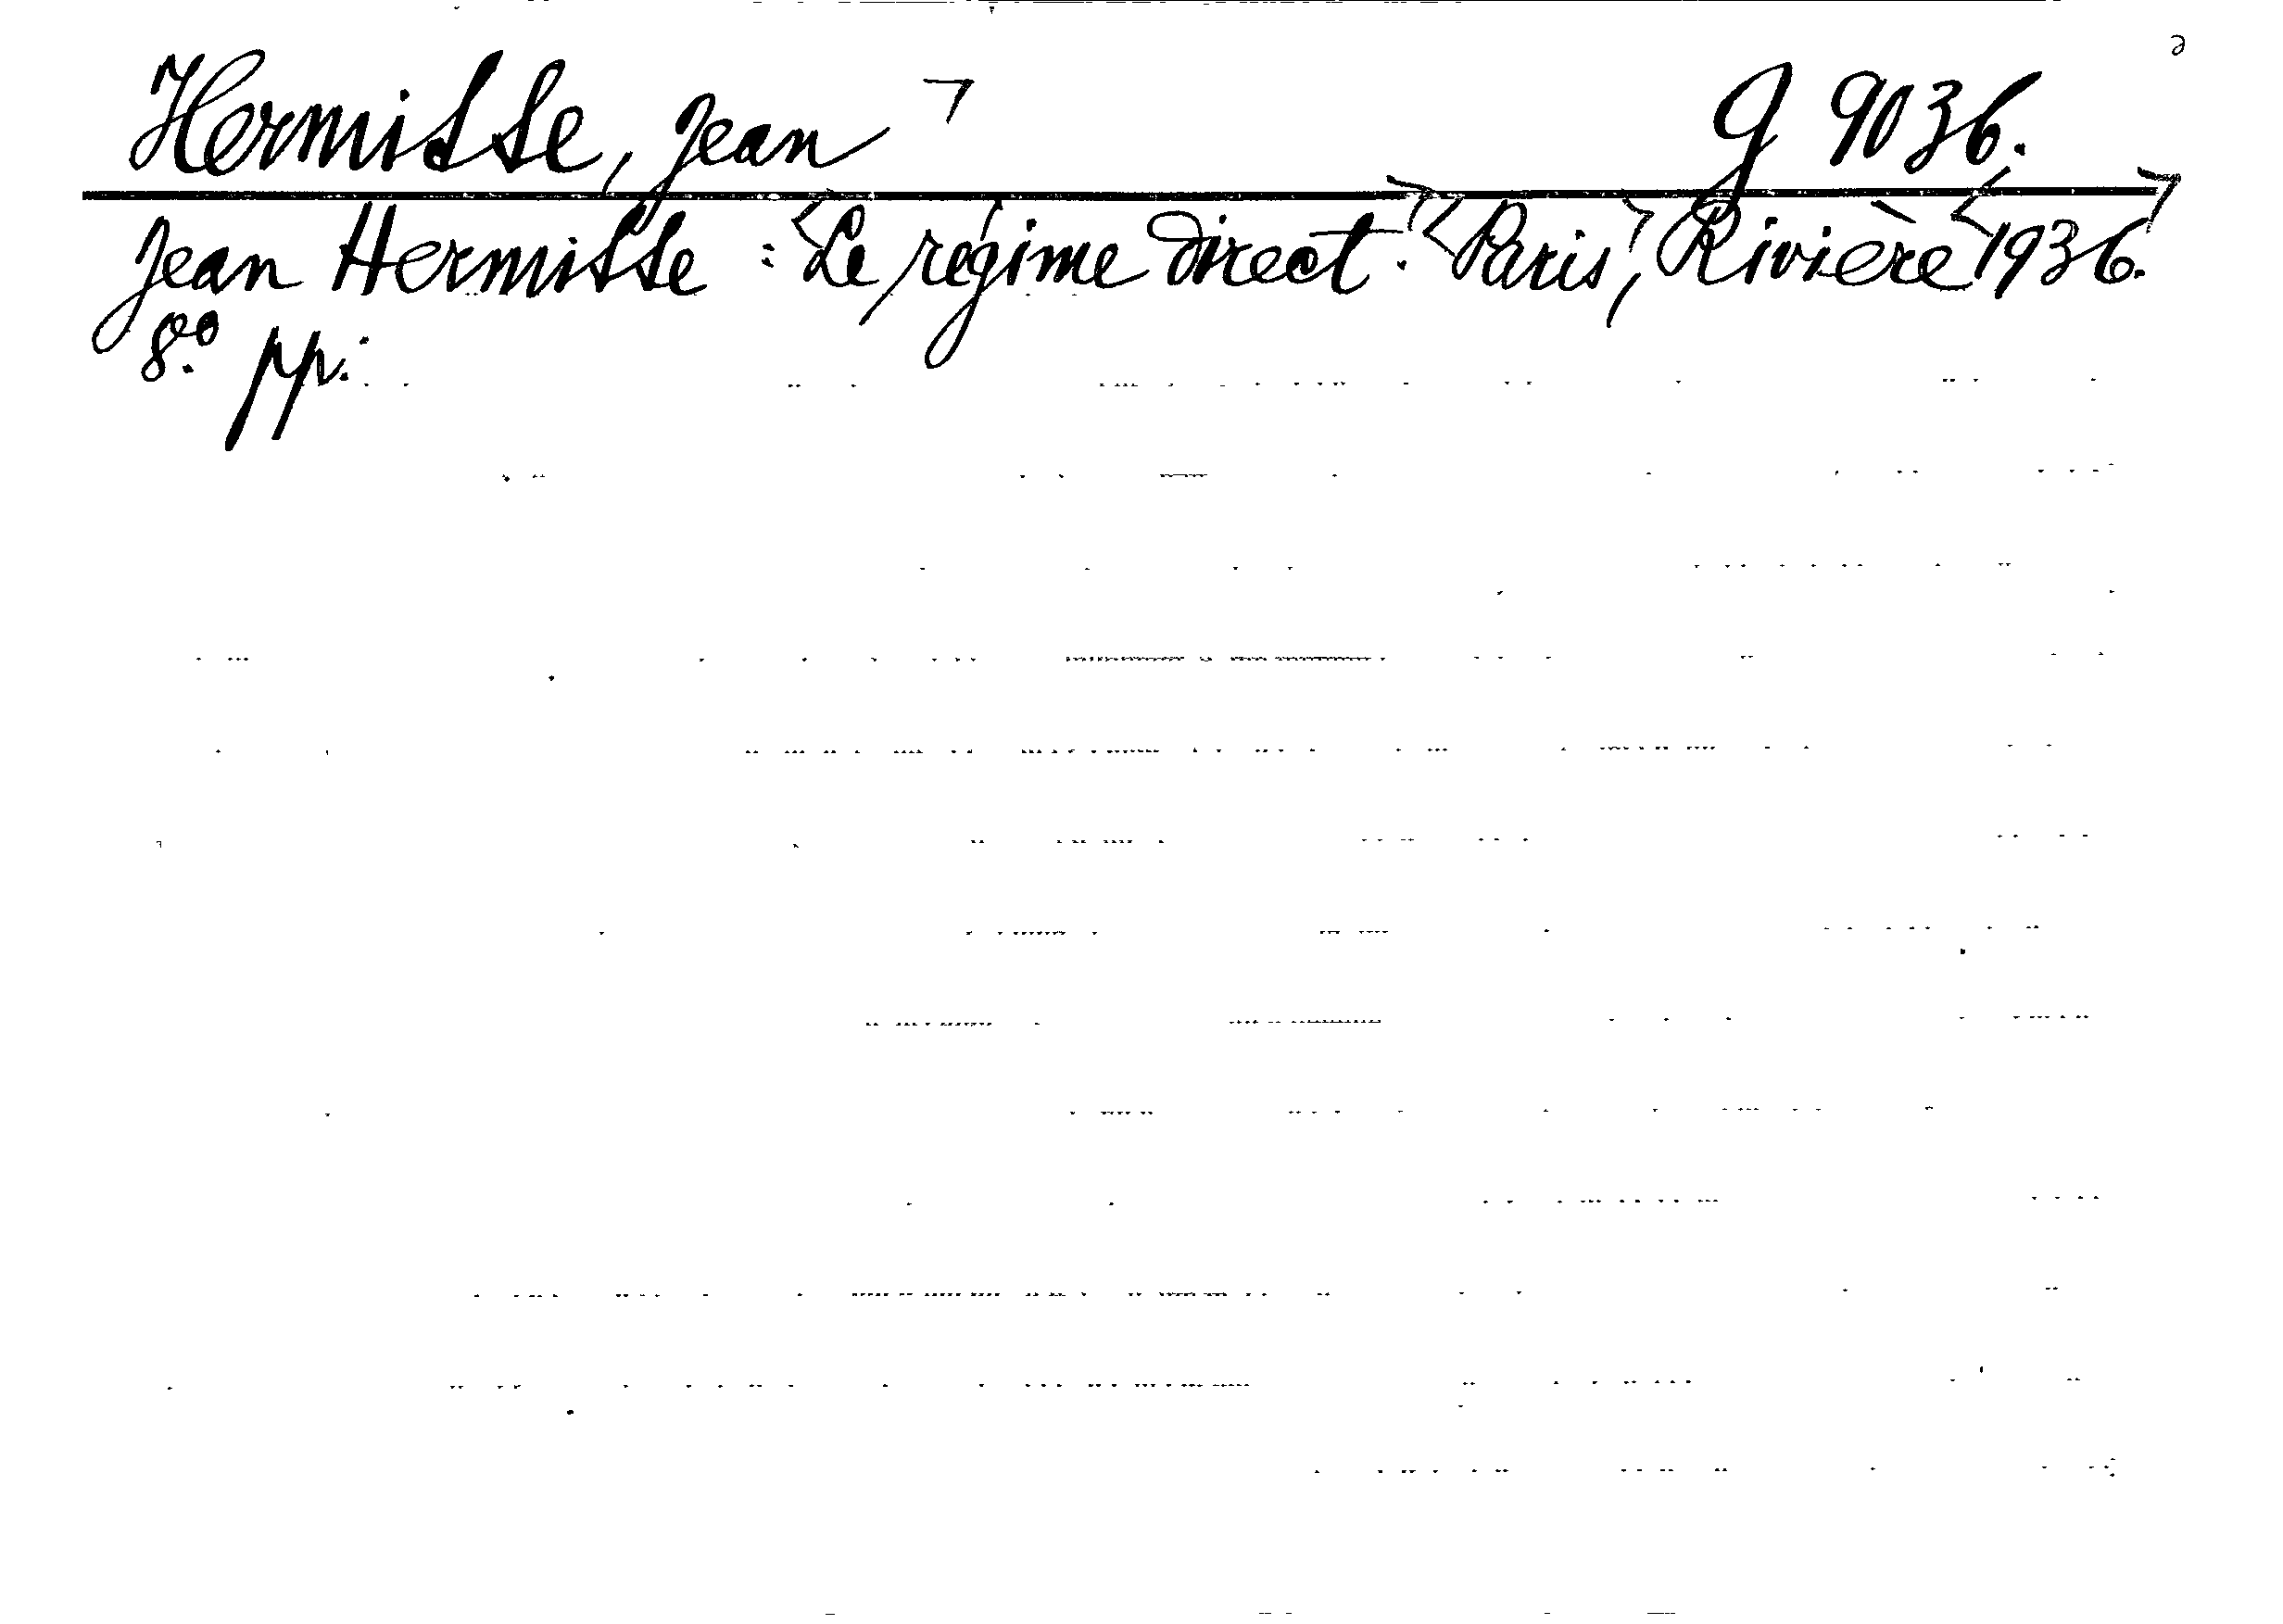 Hermisse, Jean G 9036.
Jean Hermisse : Le régime direct. Paris, Rivière 1936.
8.° pp.